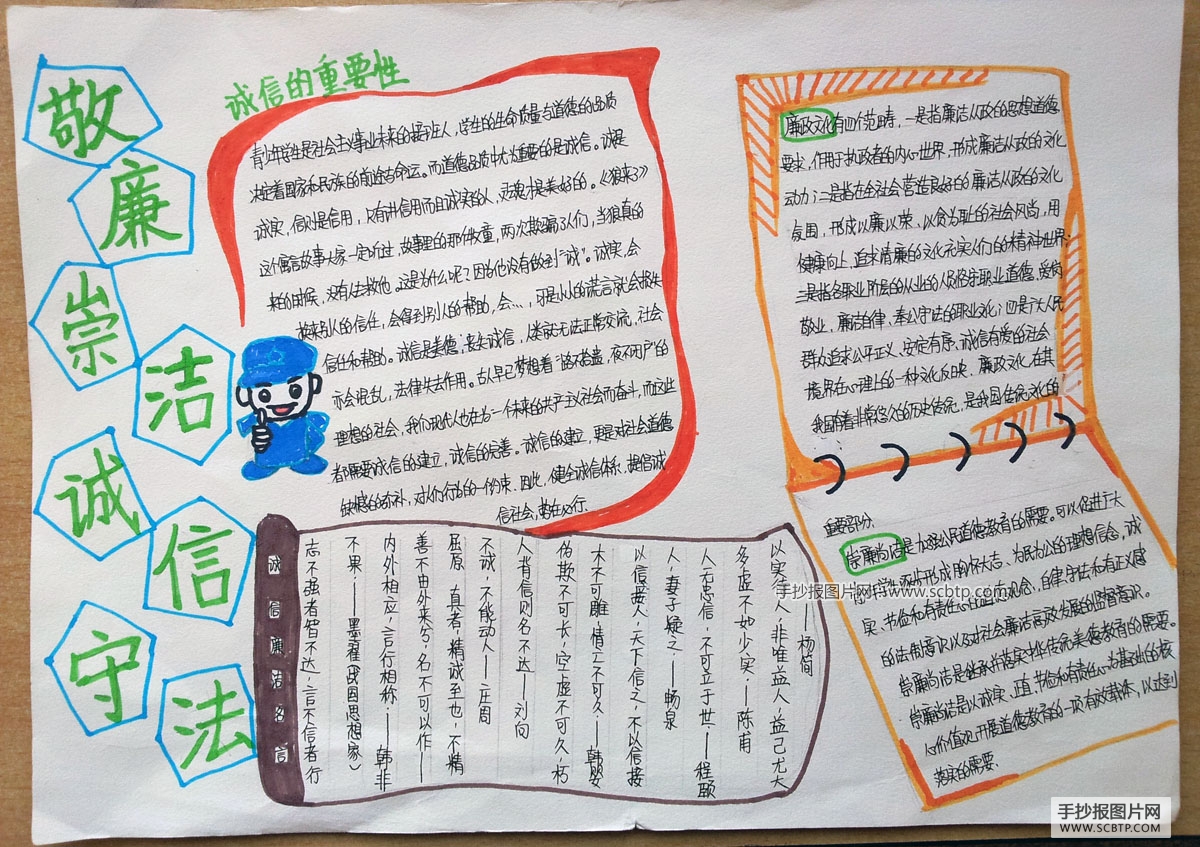 敬
廉
崇
洁
诚
信
守
法
诚信的重要性
青少年学生是社会主义事业未来的接班人,学生的生命质量与道德的品质
决定着国家和民族的前途命运。而道德品质中尤为重要的是诚信。诚是
诚实,信则是信用,只有讲信用而且诚实的人,灵魂才是美好的。《狼来了》
这个寓言故事大家一定听过,故事里的那个牧童,两次欺骗了人们,当狼真的
来的时候,没有人去救他。这是为什么呢?因为他没有做到“诚”。诚实,会
换来别人的信任,会得到别人的帮助,会……,可是小小的谎言就会损失
信任和帮助。诚信是美德,丧失诚信,人类就无法正常交流,社会
亦会混乱,法律失去作用。古人早已梦想着“路不拾遗,夜不闭户”的
理想的社会,我们现代人也在为一个未来的共产主义社会而奋斗,而这些
都需要诚信的建立,诚信的完善。诚信的建立,更是对社会道德
缺憾的弥补,对人们行为的一个约束.因此,健全诚信体系,提倡诚
信社会,势在必行.
诚信廉洁名言
以实待人,非唯益人,益己尤大
——杨简
多虚不如少实.——陈甫
人无忠信,不可立于世.——程颐
人,妻子疑之——畅泉
以信接人,天下信之,不以信接
木不可雕,情亡不可久——韩婴
伪欺不可长,空虚不可久,朽
人背信则名不达——刘向
不诚,不能动人——庄周
屈原 真者,精诚至也,不精
善不由外来兮,名不可以作——
内外相应,言行相称.——韩非
不果.——墨翟(战国思想家)
志不强者智不达,言不信者行
廉政文化有四个范畴,一是指廉洁从政的思想道德
要求,作用于执政者的内心世界,形成廉洁从政的文化
动力;二是指在全社会营造良好的廉洁从政的文化
氛围,形成以廉以荣、以贪为耻的社会风尚,用
健康向上,追求清廉的文化充实人们的精神世界.
三是指各职业阶层的从业的人员恪守职业道德,爱岗
敬业,廉洁自律、奉公守法的职业文化;四是广大人民
群众追求公平正义、安定有序、诚信有爱的社会
境界在心理上的一种文化反映.廉政文化,在其
我国有着非常悠久的历史传统,是我国传统文化的
重要部分.
崇廉尚洁是加强公民道德教育的需要。可以促进广大
青少年学生逐步形成胸怀大志、为民办公的理想信念,诚
实、节俭和有责任心的道德观念,自律、守法和有正义感
的法制意识以及对社会廉洁高效发展的监督意识。
崇廉尚洁是继承并落实中华传统美德教育的需要。
崇廉尚洁是以诚实、正直、节俭和有责任心为基础的核
心价值观,开展道德教育的一项有效载体,以达到
落实的需要.
手抄报图片网 www.scbtp.com
手抄报图片网
WWW.SCBTP.COM